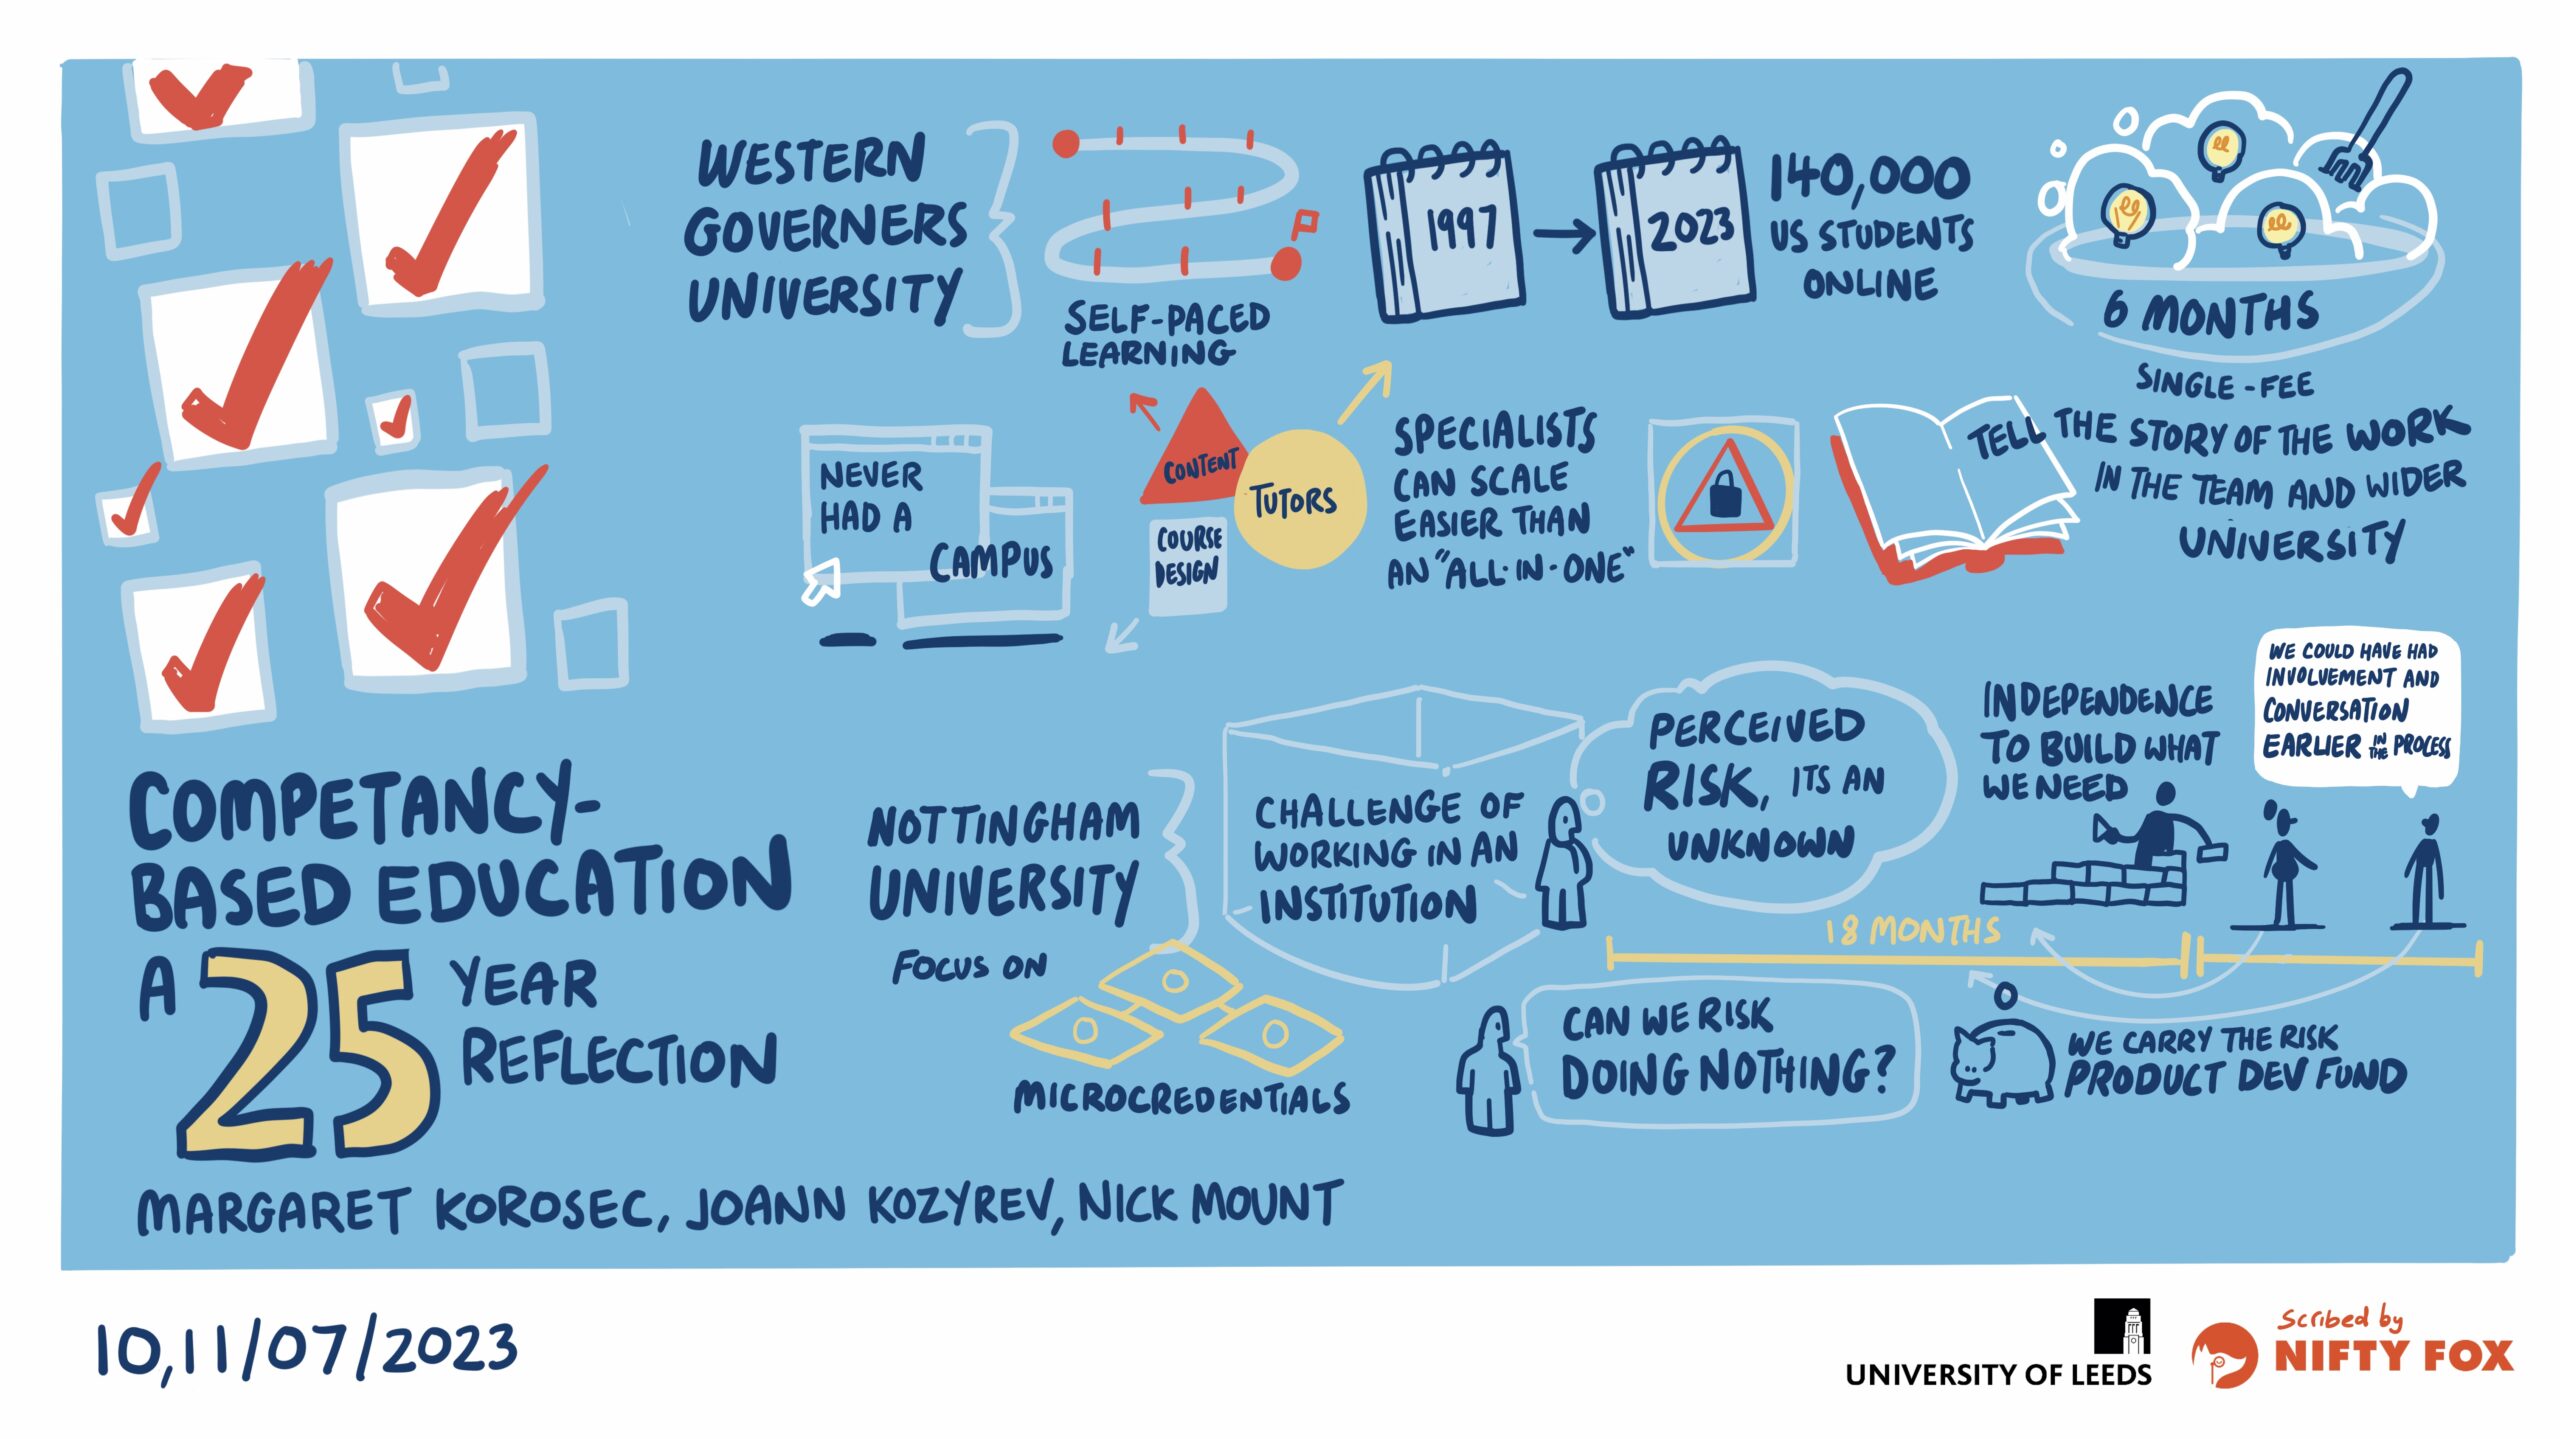 WESTERN
GOVERNERS
UNIVERSITY
SELF-PACED
LEARNING
1997
2023
140,000
US STUDENTS
ONLINE
6 MONTHS
SINGLE-FEE
NEVER
HAD A
CAMPUS
CONTENT
TUTORS
COURSE
DESIGN
SPECIALISTS
CAN SCALE
EASIER THAN
AN "ALL-IN-ONE"
TELL THE STORY OF THE WORK
IN THE TEAM AND WIDER
UNIVERSITY
COMPETANCY-
BASED EDUCATION
A 25 YEAR
REFLECTION
MARGARET KOROSEC, JOANN KOZYREV, NICK MOUNT
NOTTINGHAM
UNIVERSITY
FOCUS ON
MICROCREDENTIALS
CHALLENGE OF
WORKING IN AN
INSTITUTION
PERCEIVED
RISK, ITS AN
UNKNOWN
INDEPENDENCE
TO BUILD WHAT
WE NEED
WE COULD HAVE HAD
INVOLVEMENT AND
CONVERSATION
EARLIER IN THE PROCESS
18 MONTHS
CAN WE RISK
DOING NOTHING?
WE CARRY THE RISK
PRODUCT DEV FUND
10,11/07/2023
UNIVERSITY OF LEEDS
Scribed by
NIFTY FOX